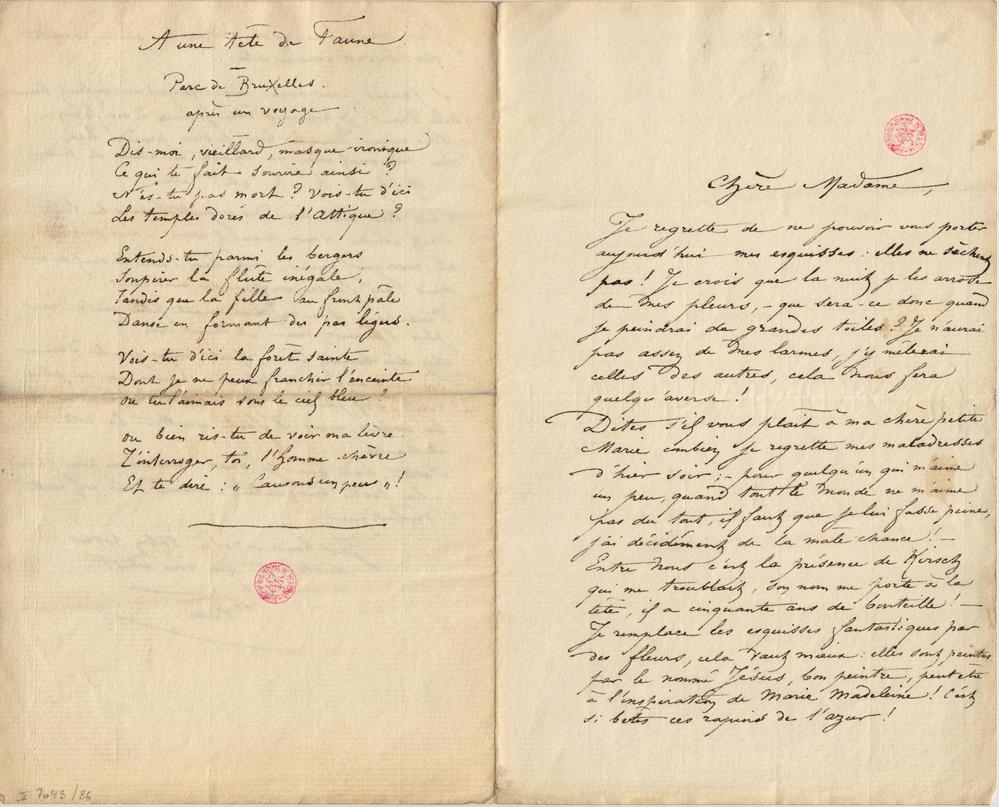 A une tête de Faune
Parc de Bruxelles.
après un voyage
Dis-moi, vieillard, masque ironique
Ce qui te fait sourire ainsi ?
N'es-tu pas mort ? Vois-tu d'ici
Les temples dorés de l'Attique ?
Entends-tu parmi les bergers
Soupirer la flûte inégale,
Tandis que la fille au front pâle
Danse en formant des pas légers.
Vois-tu d'ici la forêt sainte
Dont je ne peux franchir l'enceinte
Où tu l'aimais sous le ciel bleu ?
Ou bien ris-tu de voir ma lèvre
T'interroger, toi, l'homme-chèvre
Et te dire : „ Causons un peu „ !
II 7043 / 86
Chère Madame,
Je regrette de ne pouvoir vous porter
aujourd'hui mes esquisses : elles ne sèchent
pas ! Je crois que la nuit je les arrose
de mes pleurs, - que sera-ce donc quand
je peindrai de grandes toiles ? Je n'aurai
pas assez de mes larmes, j'y mêlerai
celles des autres, cela nous fera
quelqu'averse !
Dites s'il vous plaît à ma chère petite
Marie combien je regrette mes maladresses
d'hier soir ; - pour quelqu'un qui m'aime
un peu, quand tout le monde ne m'aime
pas du tout, il faut que je lui fasse peine,
j'ai décidément de la male chance ! -
Entre nous c'est la présence de Kirsch
qui me troublait, son nom me porte à la
tête, il a cinquante ans de bouteille ! -
Je remplace les esquisses fantastiques par
des fleurs, cela vaut mieux : elles sont peintes
par le nommé Jésus, bon peintre, peut-être
à l'inspiration de Marie Madeleine ! C'est
si bêtes ces rapins de l'azur !